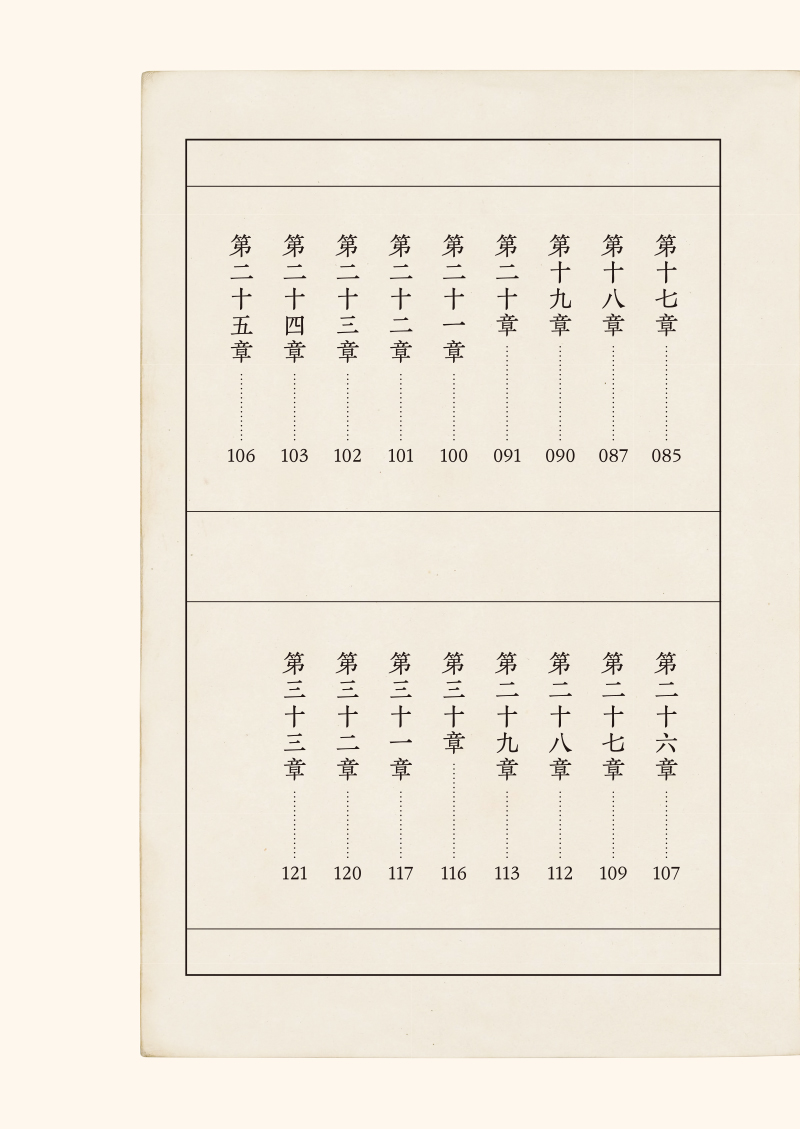 第十七章 085
第十八章 087
第十九章 090
第二十章 091
第二十一章 100
第二十二章 101
第二十三章 102
第二十四章 103
第二十五章 106
第二十六章 107
第二十七章 109
第二十八章 112
第二十九章 113
第三十章 116
第三十一章 117
第三十二章 120
第三十三章 121